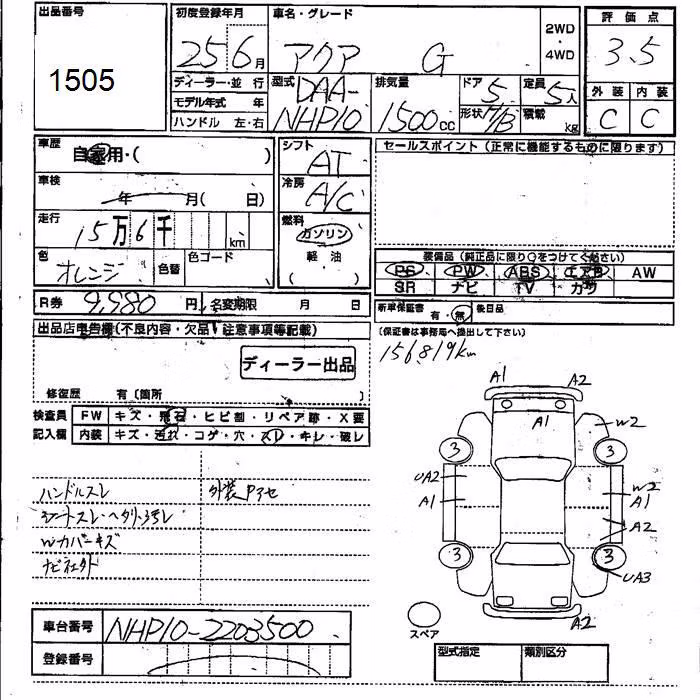 出品番号
1505
初度登録年月
25年6月
車名・グレード
アクア G
2WD・4WD
評価点
3.5
外装 内装
C C
ディーラー・並行
モデル年式 年
ハンドル 左・右
型式
DAA-
NHP10
排気量
1500cc
ドア 5
形状 H/B
定員 5人
積載 kg
車歴
自家用・( )
車検
年 月( 日)
走行
15万6千 km
色
オレンジ
色替
色コード
シフト
AT
冷房
A/C
燃料
ガソリン
(軽油)
セールスポイント(正常に機能するものに限ります)
装備品(純正品に限り○をつけてください)
PS PW ABS エアB AW
SR ナビ TV カワ
R券 9,980円
名変期限 月 日
新車保証書 有・無
後日品
(保証書は事務局へ提出して下さい)
出品店申告欄(不良内容・欠品・注意事項等記載)
ディーラー出品
156819km
修復歴 有〔箇所 〕
検査員記入欄
FW キズ・飛石・ヒビ割・リペア跡・X要
内装 キズ・汚れ・コゲ・穴・スレ・キレ・破レ
ハンドルスレ
外装Pアセ
シートスレ・ヘタリ・汚レ
Wカバーキズ
ナビ社外
A1 A2
A1 W2
3 3
UA2
A1
W2
A1
A2
3 3
UA3
A2
スペア
車台番号 NHP10-2203500
登録番号
型式指定 類別区分